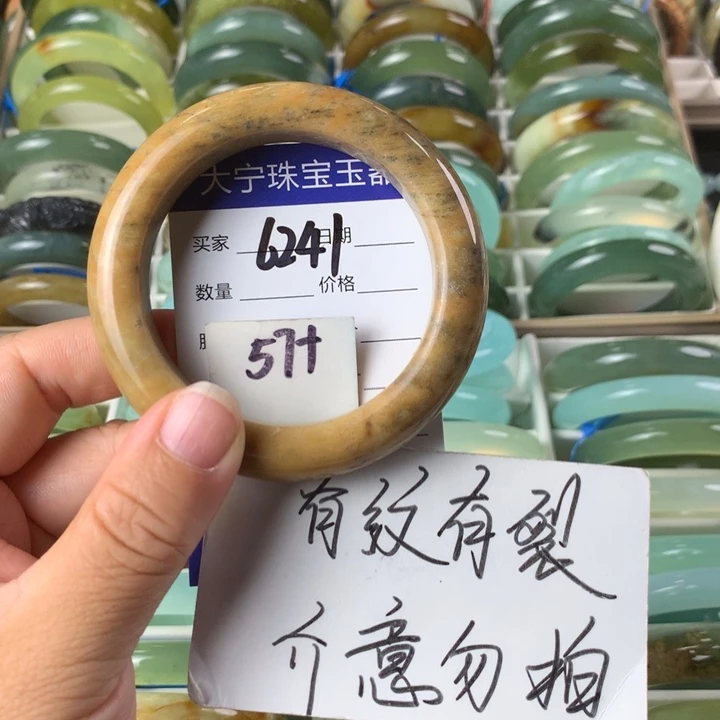 大宁珠宝玉器
买家 6241 日期
数量 价格
57+
有纹有裂
介意勿拍